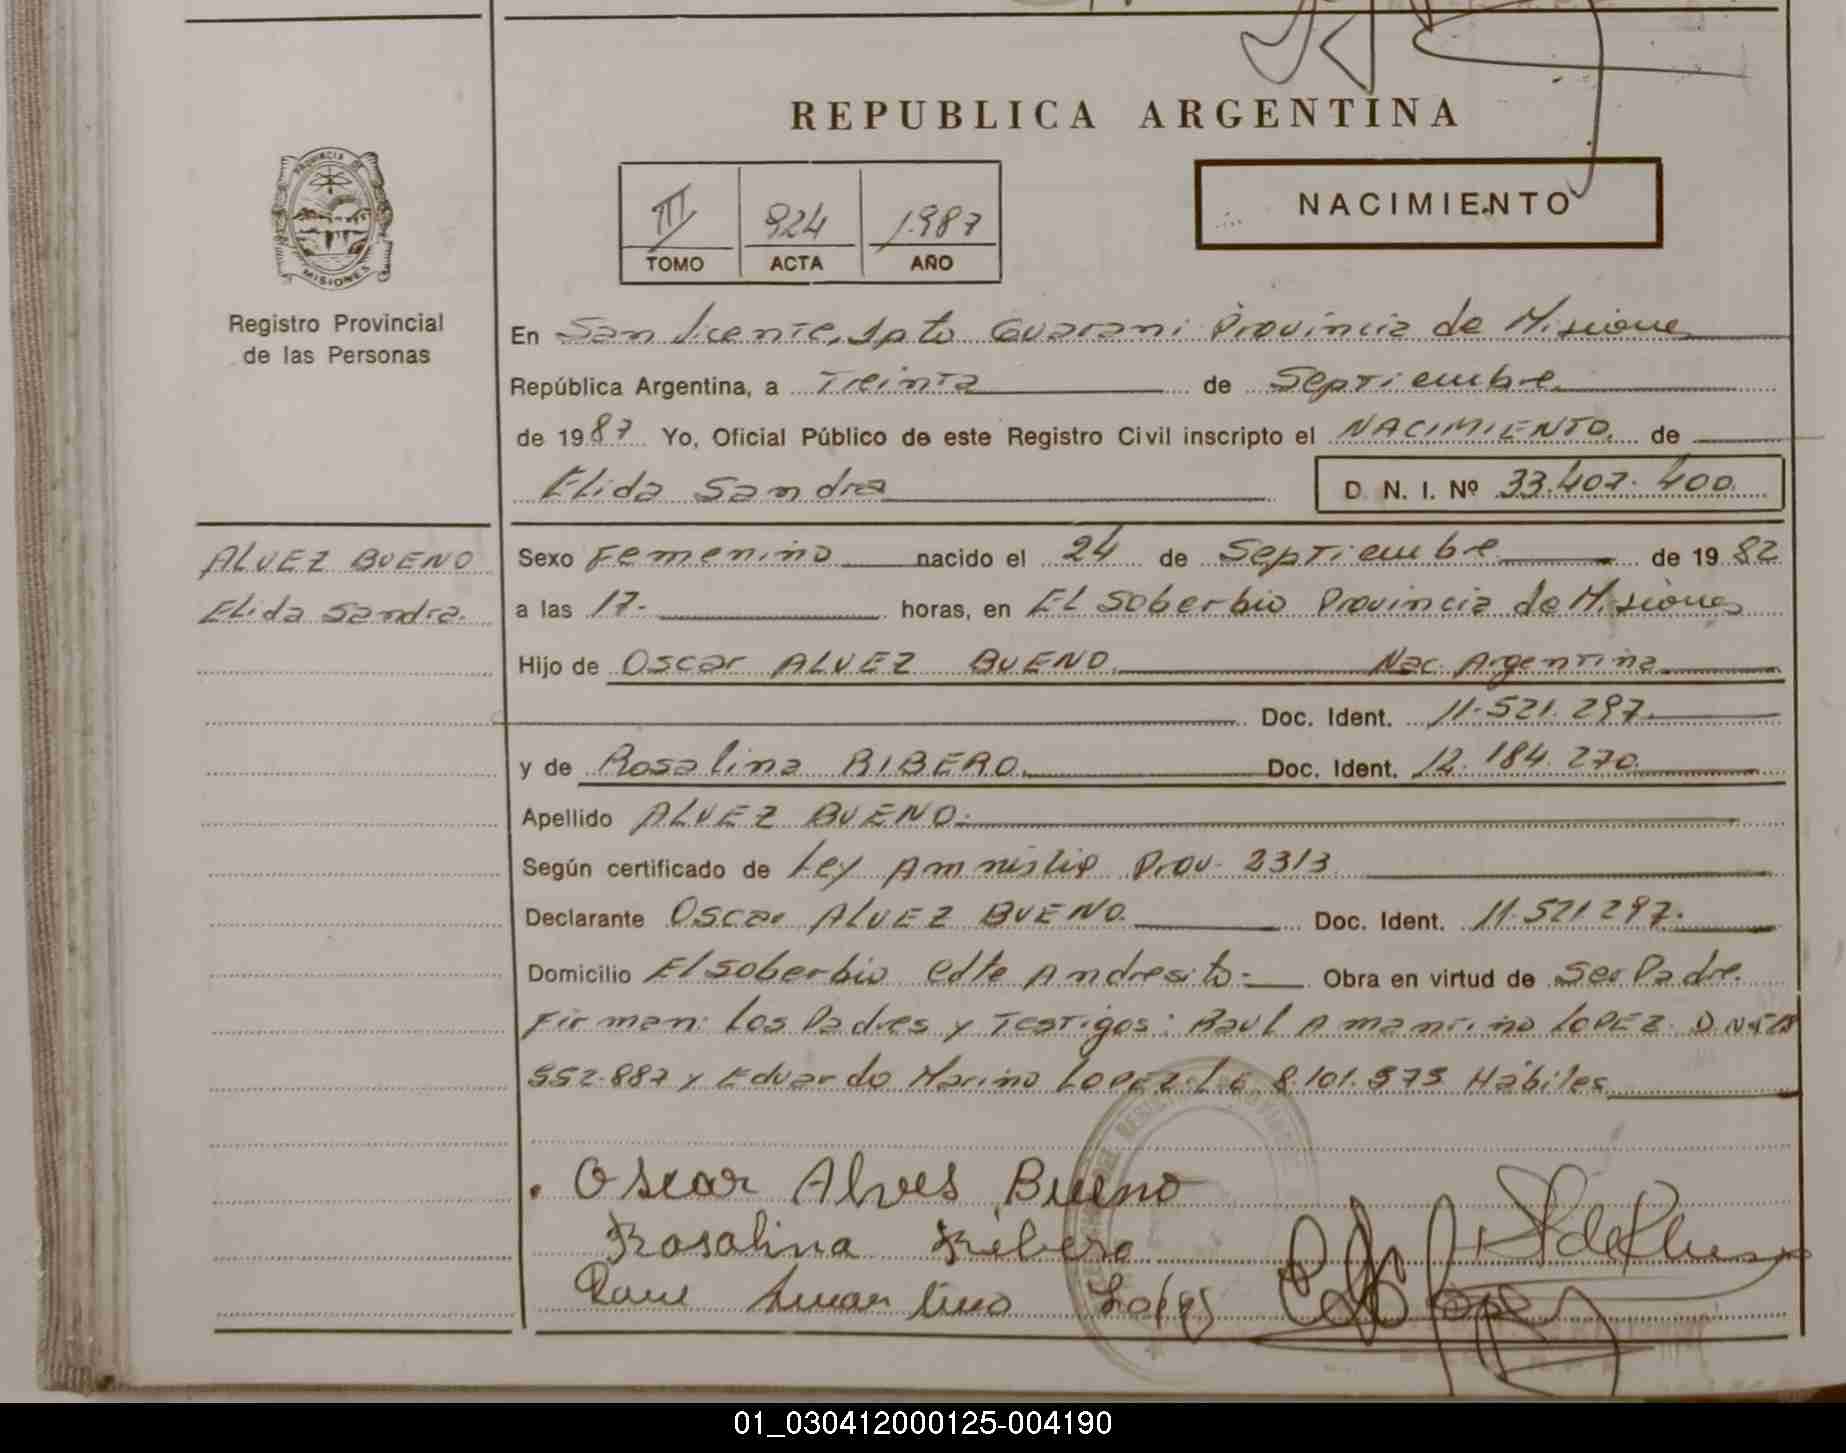 REPUBLICA ARGENTINA
PROVINCIA DE
MISIONES
Registro Provincial
de las Personas
III 924 1987
TOMO ACTA AÑO
NACIMIENTO
En San Vicente, Dpto Guarani Provincia de Misiones
República Argentina, a Treinta de Septiembre
de 1987 Yo, Oficial Público de este Registro Civil inscripto el NACIMIENTO de
Elida Sandra D. N. I. Nº 33.407.400
ALVEZ BUENO
Elida Sandra.
Sexo Femenino nacido el 24 de Septiembre de 1982
a las 17. horas, en El Soberbio Provincia de Misiones
Hijo de Oscar ALVEZ BUENO Nac. Argentina
Doc. Ident. 11.521.297
y de Rosalina RIBERO Doc. Ident. 12.184.270
Apellido ALVEZ BUENO.
Según certificado de Ley Amnistia Prov. 2313
Declarante Oscar ALVEZ BUENO Doc. Ident. 11.521.297.
Domicilio El Soberbio Cdte Andresito Obra en virtud de Ser Padre.
Firman: Los Padres y Testigos: Raul Amantino LOPEZ. D.N.I.
552.887 y Eduardo Marino LOPEZ. L.E 8.101.575 Hábiles
Oscar Alves Bueno
Rosalina Ribero
Raul Amantino Lopez
01_030412000125-004190